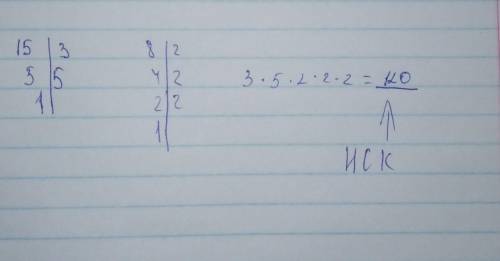 15 | 3
5 | 5
1 |
8 | 2
4 | 2
2 | 2
1 |
3 · 5 · 2 · 2 · 2 = 120
НСК